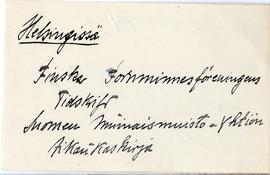 Helsingissä
Finska Fornminnesföreningens
Tidskrift
Suomen Muinaismuisto-Yhtiön
Aikauskirja